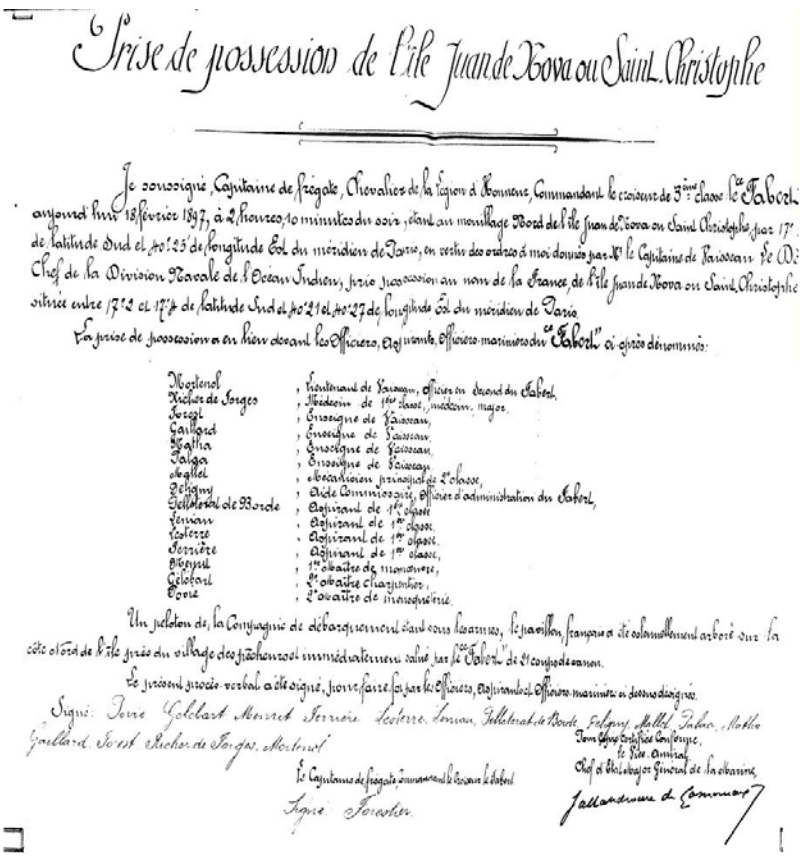 Prise de possession de l'île Juan de Nova ou Saint. Christophe
Je soussigné, Capitaine de frégate, Chevalier de la Légion d'Honneur, Commandant le croiseur de 3ème classe le "Fabert"
aujourd'hui 18 février 1897, à 2 heures, 10 minutes du soir, étant au mouillage Nord de l'île Juan de Nova ou Saint Christophe, par 17°
de latitude Sud et 40° 25' de longitude Est du méridien de Paris, en vertu des ordres à moi donnés par Mr le Capitaine de Vaisseau
Chef de la Division Navale de l'Océan Indien, pris possession au nom de la France, de l'île Juan de Nova ou Saint, Christophe
située entre 17° 2 et 17° 4 de latitude Sud et 40° 21 et 40° 27 de longitude Est du méridien de Paris.
La prise de possession a eu lieu devant les Officiers, Aspirants, Officiers-mariniers du "Fabert" ci-après dénommés:
Mortenol , Lieutenant de Vaisseau, officier en second du Fabert,
Richer de Forges , Médecin de 1ère classe, médecin, major,
Forest , Enseigne de Vaisseau,
Gaillard , Enseigne de Vaisseau,
Matha , Enseigne de Vaisseau,
, Enseigne de Vaisseau
, Mécanicien principal de 2e classe,
Deligny , Aide Commissaire, Officier d'administration du Fabert,
de Borde , Aspirant de 1ère classe
, Aspirant de 1ère classe,
Lesterre , Aspirant de 1ère classe,
Ferrière , Aspirant de 1ère classe,
, 1er Maître de manœuvre,
, 2e Maître charpentier,
, 2e Maître de mousqueterie.
Un peloton de, la Compagnie de débarquement étant sous les armes, le pavillon, français a été solennellement arboré sur la
côte Nord de l'île près du village des pêcheurs et immédiatement salué par le "Fabert" de 21 coups de canon.
Le présent procès-verbal a été signé, pour faire, foi par les Officiers, Aspirants et Officiers-mariniers ci dessus désignés.
Signé: Ferrière Lesterre de Borde, Deligny, Matha
Gaillard. Forest Richer de Forges, Mortenol
Pour Copie Certifiée Conforme,
le Vice. Amiral
Chef d'Etat Major Général de la Marine,
Le Capitaine de frégate, Commandant le Croiseur le Fabert
Signé: Forestier.